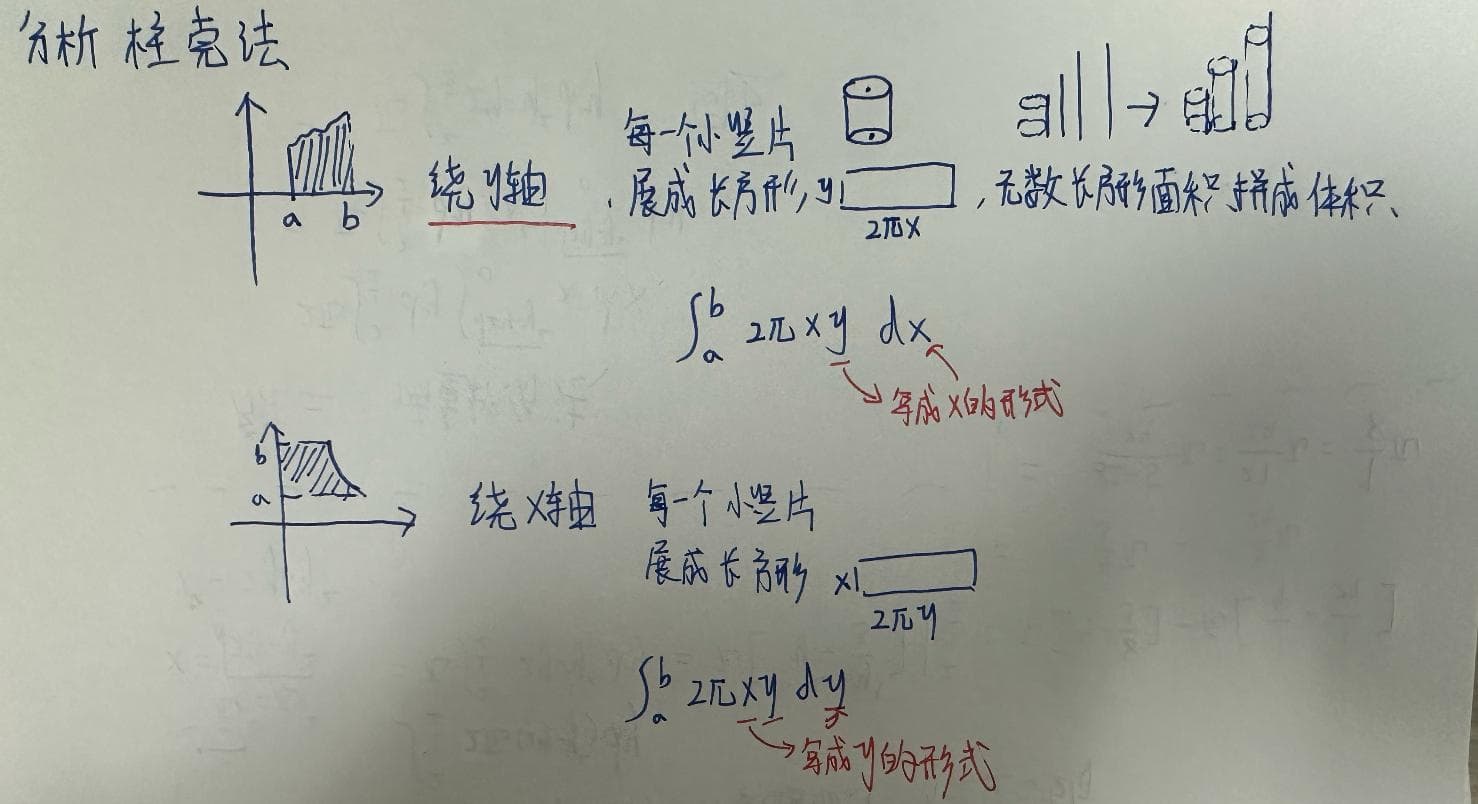 分析 柱壳法
每一个小竖片
绕y轴 . 展成长方形, y 2πx , 无数长方形面积拼成体积、
a b
∫ₐᵇ 2πxy dx
写成x的形式
b
a
绕x轴 每一个小竖片
展成长方形 x 2πy
∫ₐᵇ 2πxy dy
写成y的形式